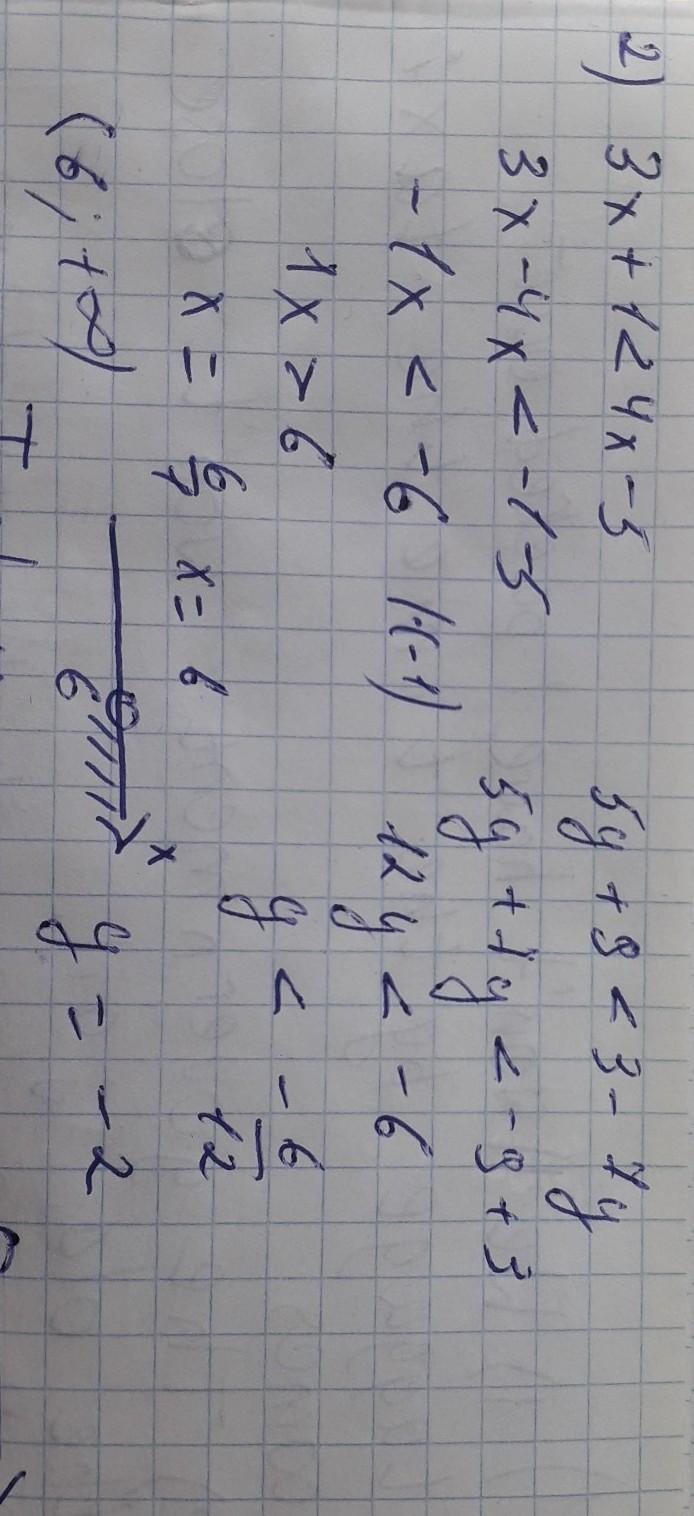 2) 3x + 1 < 4x - 5
3x - 4x < -1 - 5
-1x < -6 |·(-1)
1x > 6
x = 6/1 x = 6
(6; +∞)
6 x
5y + 9 < 3 - 7y
5y + 7y < -9 + 3
12y < -6
y < -6/12
y = -2